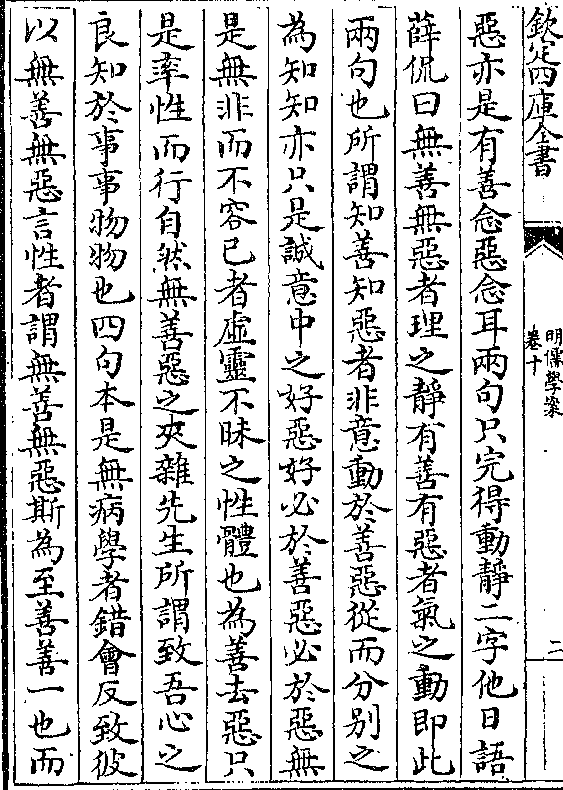 欽定四庫全書
明儒學案
卷十
二
惡亦是有善念惡念耳兩句只完得動靜二字他日語
薛侃曰無善無惡者理之靜有善有惡者氣之動即此
兩句也所謂知善知惡者非意動於善惡從而分别之
為知知亦只是誠意中之好惡好必於善惡必於惡無
是無非而不容已者虛靈不昧之性體也為善去惡只
是率性而行自然無善惡之夾雜先生所謂致吾心之
良知於事事物物也四句本是無病學者錯會反致彼
以無善無惡言性者謂無善無惡斯為至善善一也而